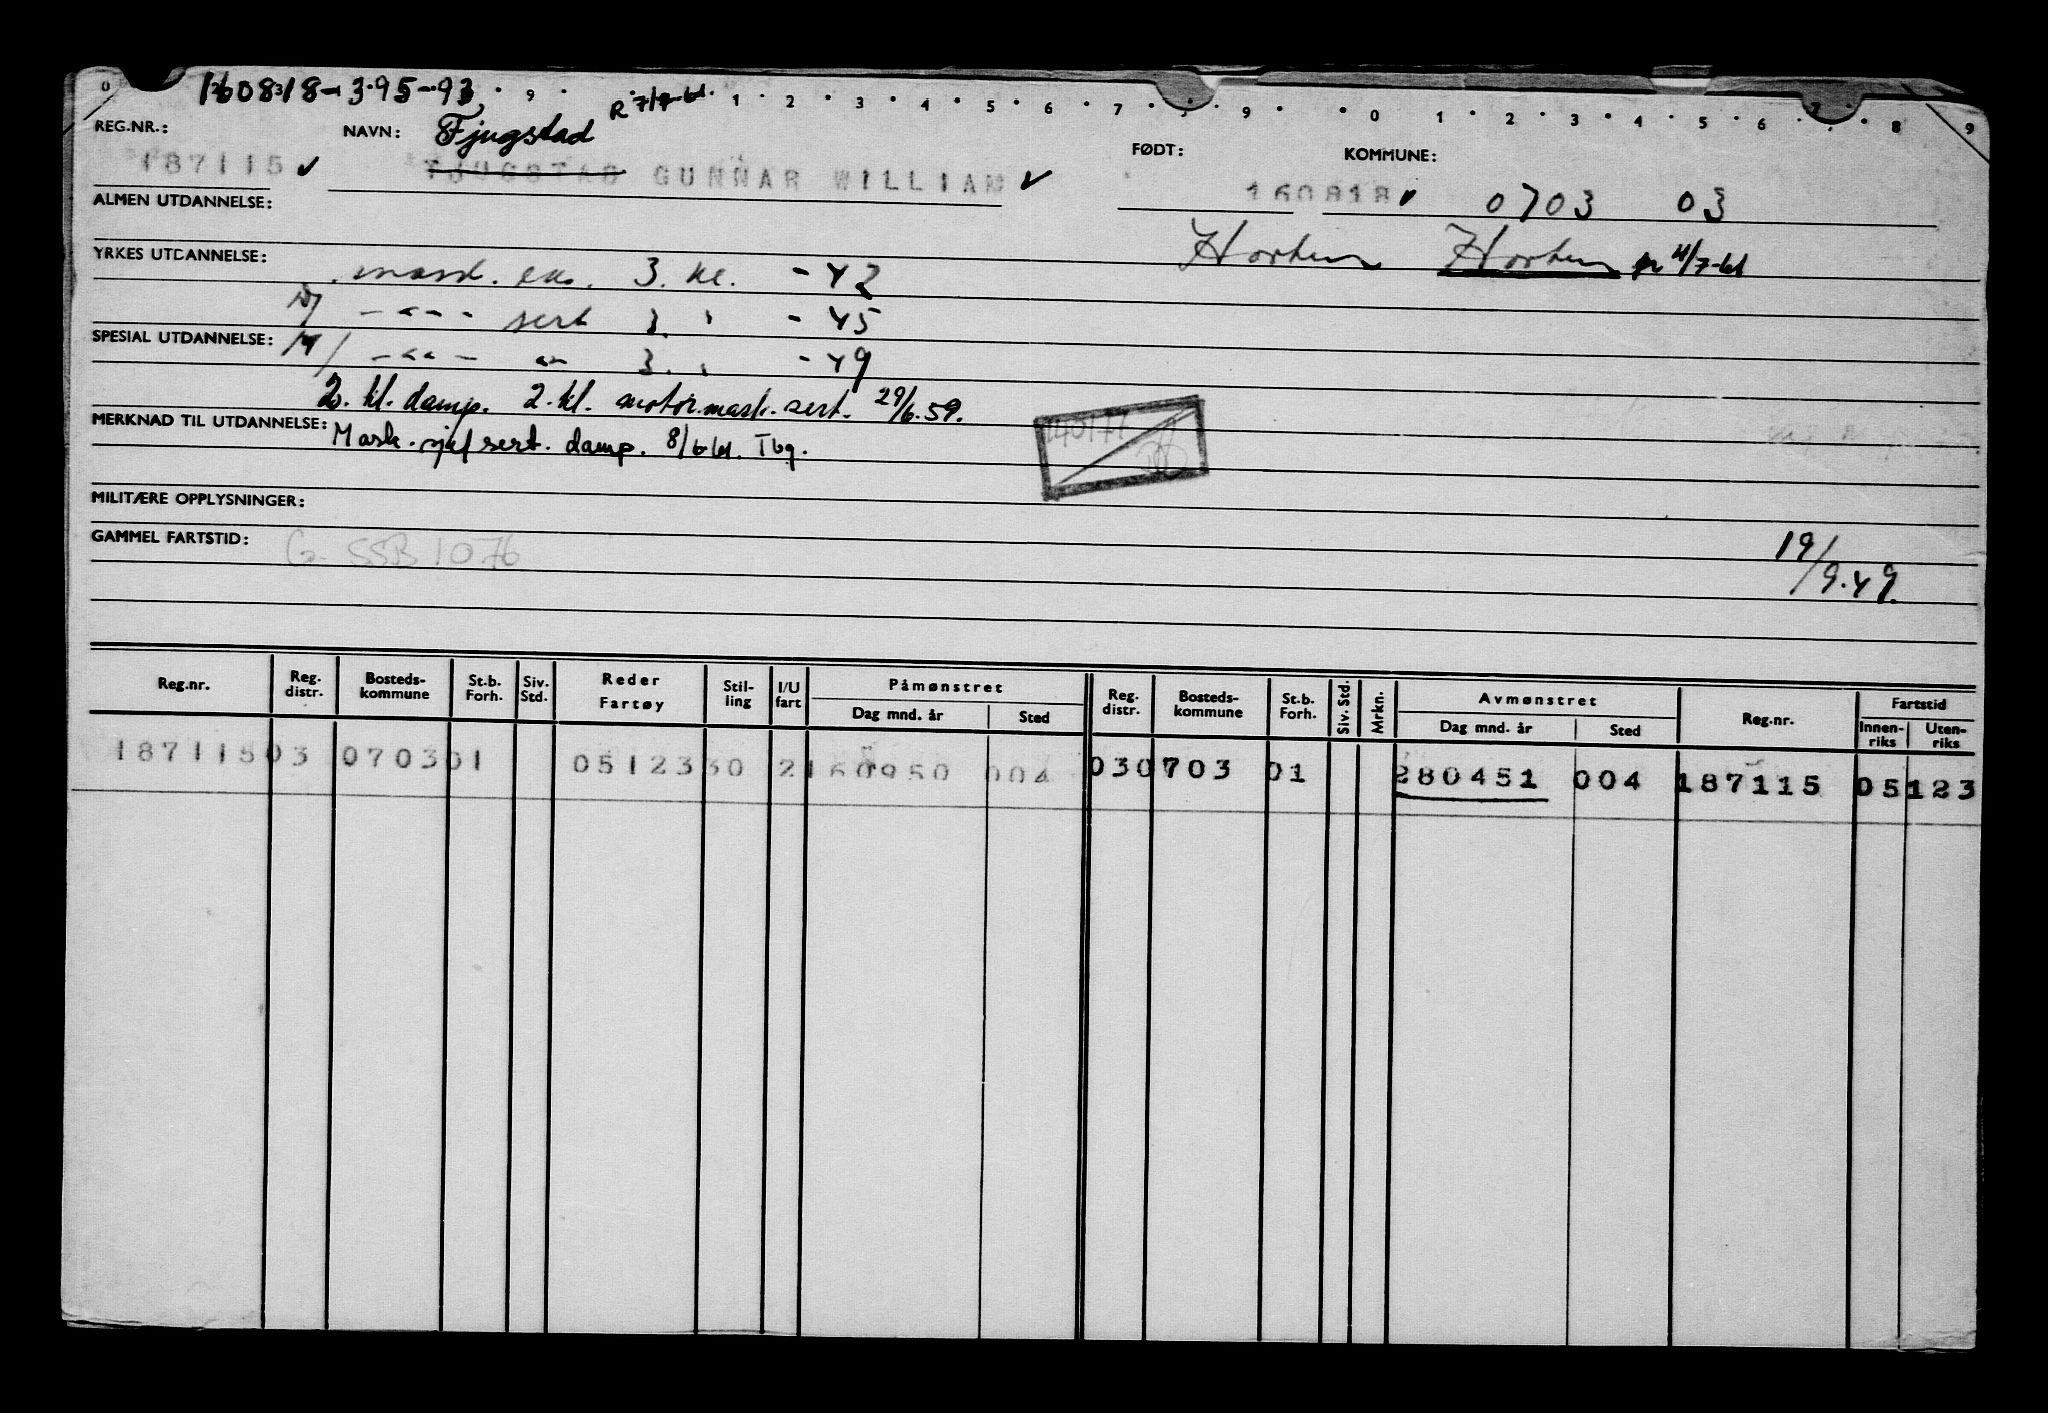 160818-395-93
9 1 2 3 4 5 6 7 8 9 0 1 2 3 4 5 6 7 8 9
REG.NR.: NAVN: Fjugstad FØDT: KOMMUNE:
187115 ✓ TJUGSTAD GUNNAR WILLIAM ✓ 160818 0703 03
ALMEN UTDANNELSE:
Horten Horten
YRKES UTDANNELSE: mask. eks. 3. kl. - 42
-"- sert 3. " - 45
SPESIAL UTDANNELSE: -"- -"- 3. " - 49
2. kl. damp. 2. kl. motor.mask. sert. 29/6.59.
MERKNAD TIL UTDANNELSE: Mask. sjef sert. damp. 8/6-61. Tbg.
140177
MILITÆRE OPPLYSNINGER:
GAMMEL FARTSTID: SSB 1076
19/9.49.
Reg.nr. Reg. distr. Bosteds-kommune St.b. Forh. Siv. Std. Reder Fartøy Stil-ling I/U fart Påmønstret Dag mnd. år Sted Reg. distr. Bosteds-kommune St.b. Forh. Siv. Std. Mrkn. Avmønstret Dag mnd. år Sted Reg.nr. Fartstid Innen-riks Uten-riks
187115 03 0703 01 05123 30 2 160950 004 03 0703 01 280451 004 187115 05123